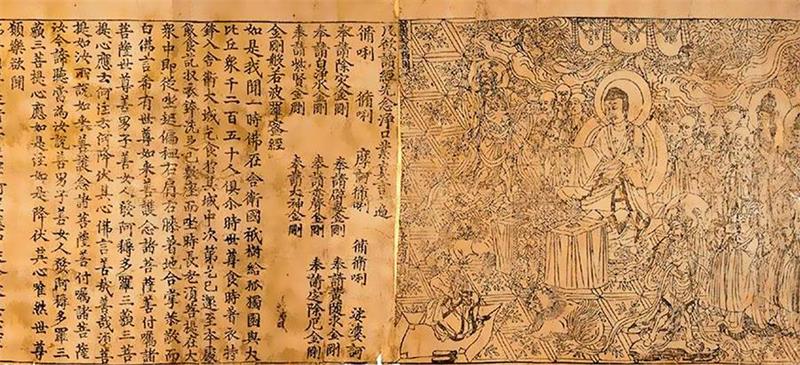 凡欲讀經先念淨口業真言一遍
脩唎 脩唎 摩訶脩唎 脩脩唎 娑婆訶
奉請除灾金剛 奉請辟毒金剛 奉請黃隨求金剛
奉請白淨水金剛 奉請赤聲金剛 奉請定除厄金剛
奉請紫賢金剛 奉請大神金剛
金剛般若波羅蜜經
如是我聞一時佛在舍衛國祇樹給孤獨園與大
比丘眾千二百五十人俱尒時世尊食時著衣持
鉢入舍衛大城乞食於其城中次第乞已還至本處
飯食訖收衣鉢洗足已敷座而坐時長老須菩提在大
眾中即從座起偏袒右肩右膝著地合掌恭敬而
白佛言希有世尊如來善護念諸菩薩善付囑諸
菩薩世尊善男子善女人發阿耨多羅三藐三菩
提心應云何住云何降伏其心佛言善哉善哉須菩
提如汝所說如來善護念諸菩薩善付囑諸菩薩
汝今諦聽當為汝說善男子善女人發阿耨多羅三
藐三菩提心應如是住如是降伏其心唯然世尊
願樂欲聞